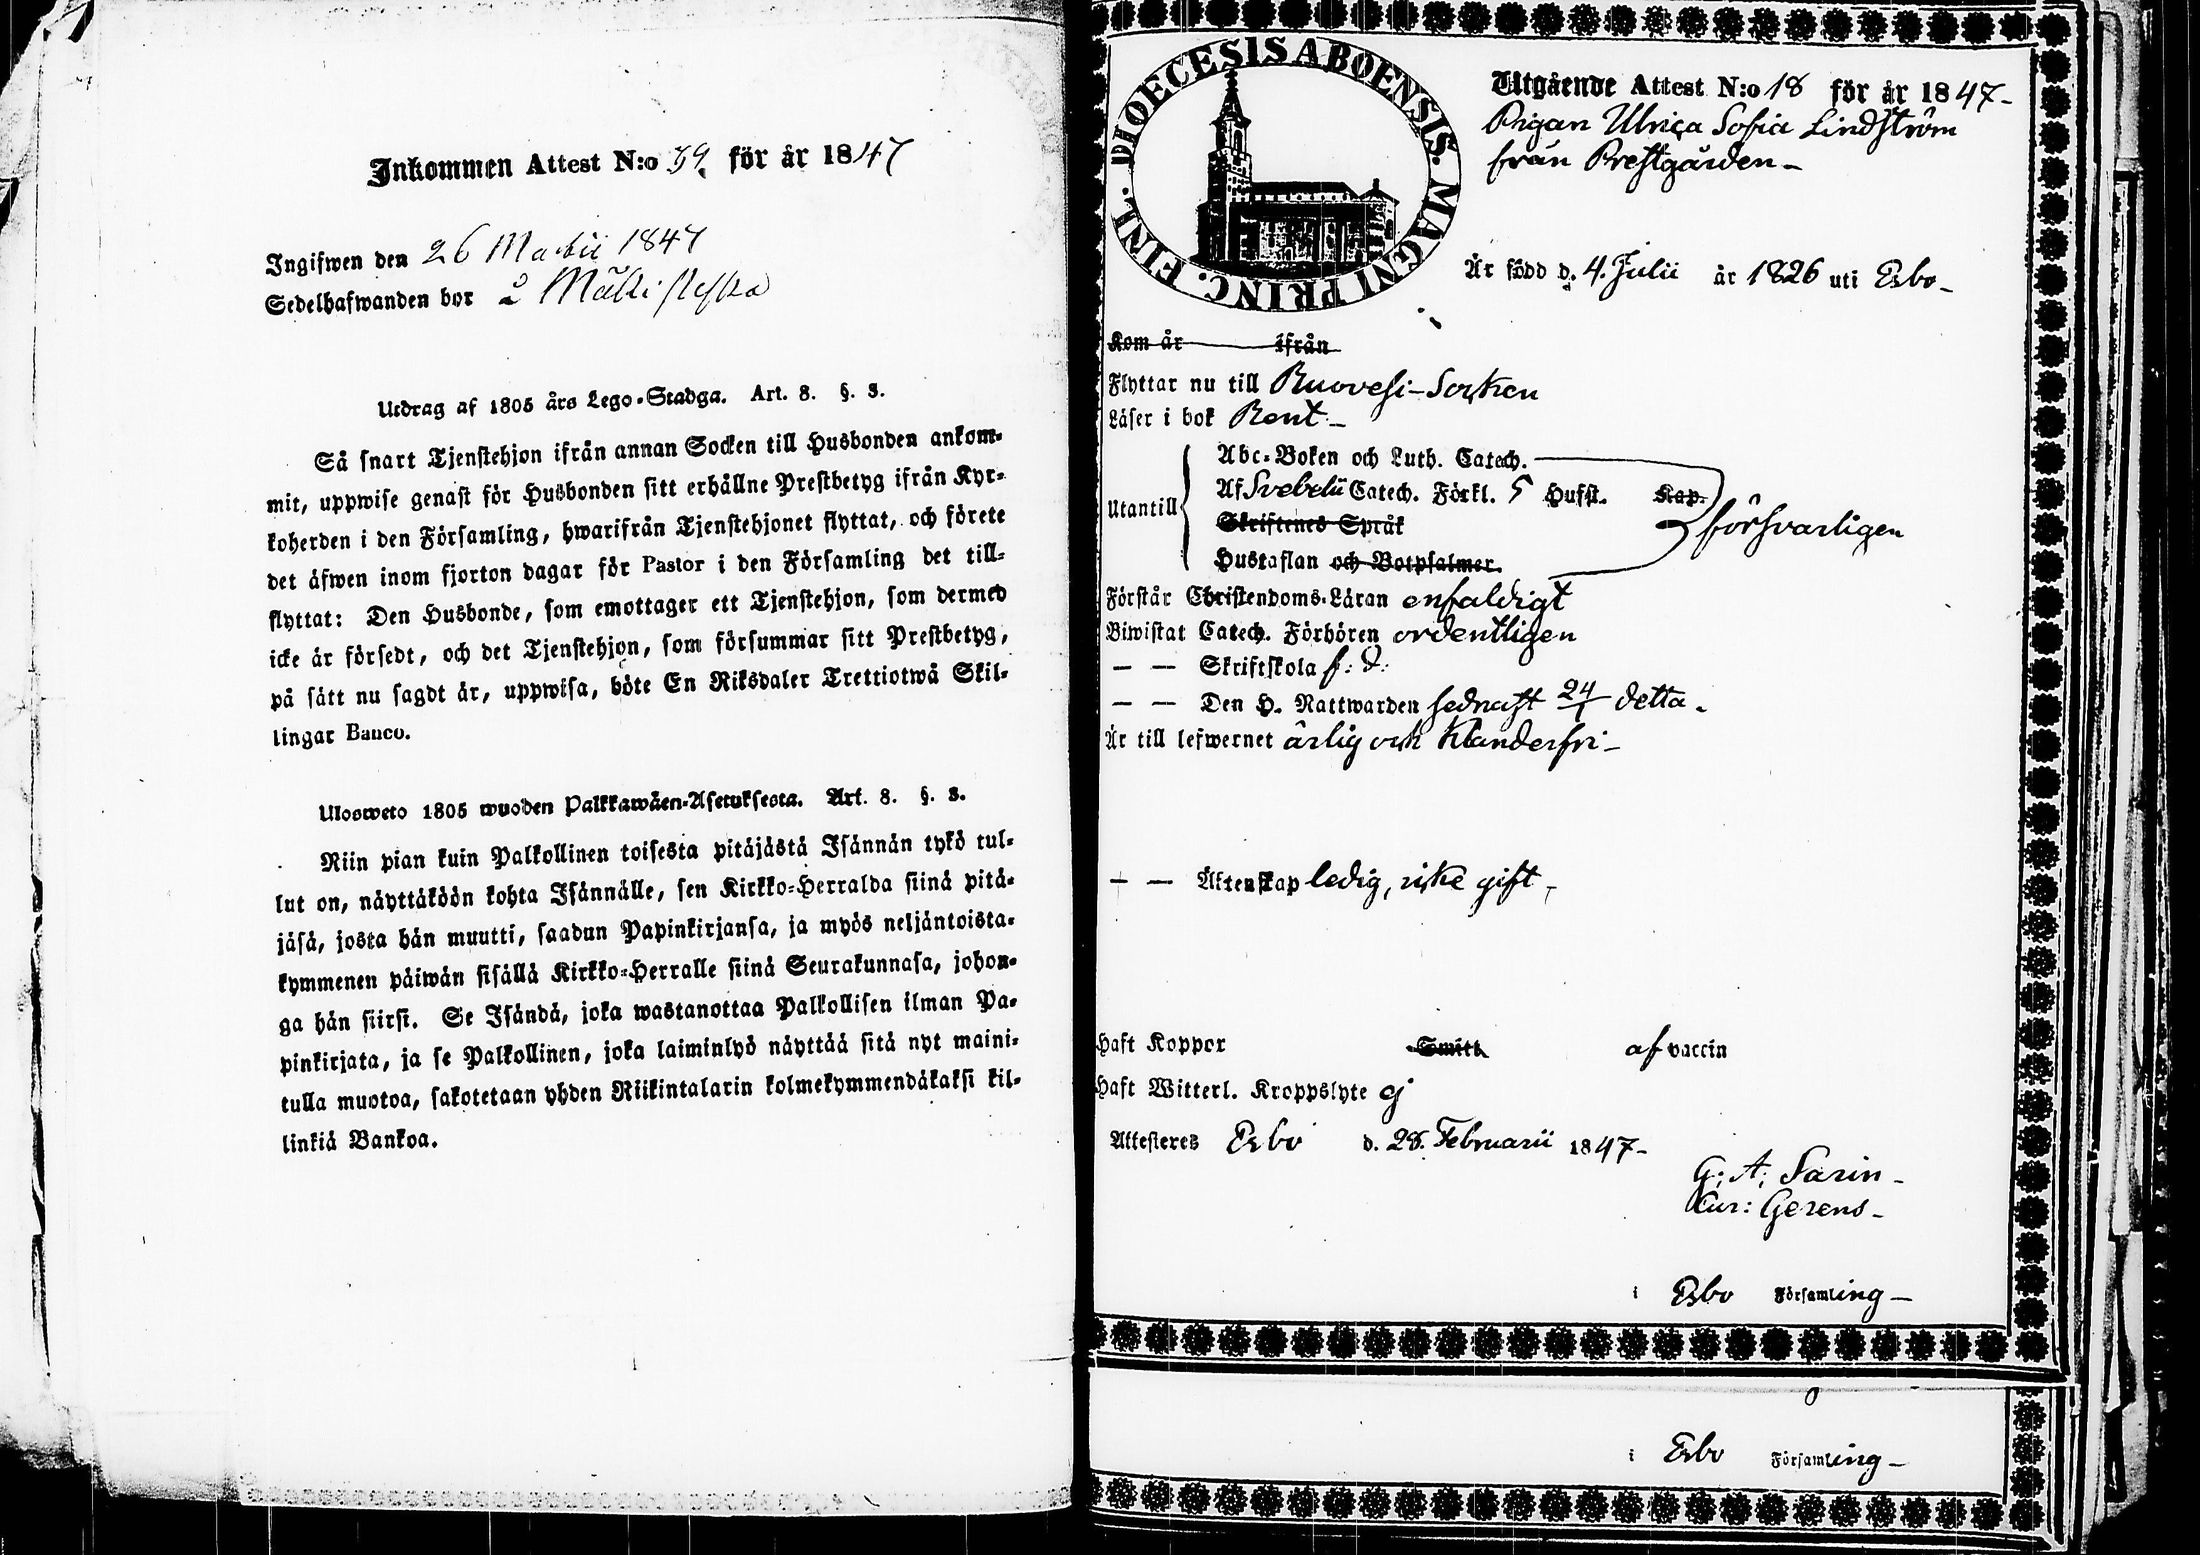 Inkommen Attest N:o 39. för år 1847
Ingifwen den 26 Martii 1847
Sedelhafwanden bor
Utdrag af 1805 års Lego-Stadga. Art. 8. §. 3.
Så snart Tjenstehjon ifrån annan Socken till Husbonden ankom-
mit, uppwise genast för Husbonden sitt erhållne Prestbetyg ifrån Kyr-
koherden i den Församling, hwarifrån Tjenstehjonet flyttat, och förete
det äfwen inom fjorton dagar för Pastor i den Församling det till-
flyttat: Den Husbonde, som emottager ett Tjenstehjon, som dermed
icke är försedt, och det Tjenstehjon, som försummar sitt Prestbetyg,
på sätt nu sagdt är, uppwisa, böte En Riksdaler Trettiotwå Skil-
lingar Banco.
Ulosweto 1805 wuoden Palkkawäen-Asetuksesta. Art. 8. §. 3.
Niin pian kuin Palkollinen toisesta pitäjästä Isännän tykö tul-
lut on, näyttäköön kohta Isännälle, sen Kirkko-Herralda siinä pitä-
jäsä, josta hän muutti, saadun Papinkirjansa, ja myös neljäntoista-
kymmenen päiwän sisällä Kirkko-Herralle siinä Seurakunnasa, johon-
ga hän siirsi. Se Isändä, joka wastanottaa Palkollisen ilman Pa-
pinkirjata, ja se Palkollinen, joka laiminlyö näyttää sitä nyt maini-
tulla muotoa, sakotetaan yhden Riikintalarin kolmekymmendäkaksi kil-
linkiä Bankoa.
DIOECESIS ABOENSIS. MAGNI PRINC. FINL.
Utgående Attest N:o 18 för år 1847-
Pigan Ulrica Sofia Lindström
från Prestgården-
Är född d. 4. Julii år 1826 uti Esbo-
Kom år ifrån
Flyttar nu till Ruovesi-Socken
Läser i bok Rent-
Utantill
Abc-Boken och Luth. Catech.
Af Svebelii Catech. Förkl. 5 Hufst. Kap.
Skriftenes Språk
försvarligen
Hustaflan och Botpsalmer.
Förstår Christendoms-Läran enfaldigt
Biwistat Catech. Förhören ordentligen
— — Skriftskola f: d:
— — Den H. Nattwarden sednast 24/1 detta.
Är till lefwernet ärlig och klanderfri-
— — Äktenskap ledig, icke gift-
Haft Koppor Smitt af vaccin
Haft Witterl. Kroppslyte ej
Attesteres Esbo d. 28. Februarii 1847-
G: A: Sarin-
Cur: Gerens-
i Esbo Församling-
i Esbo Församling-